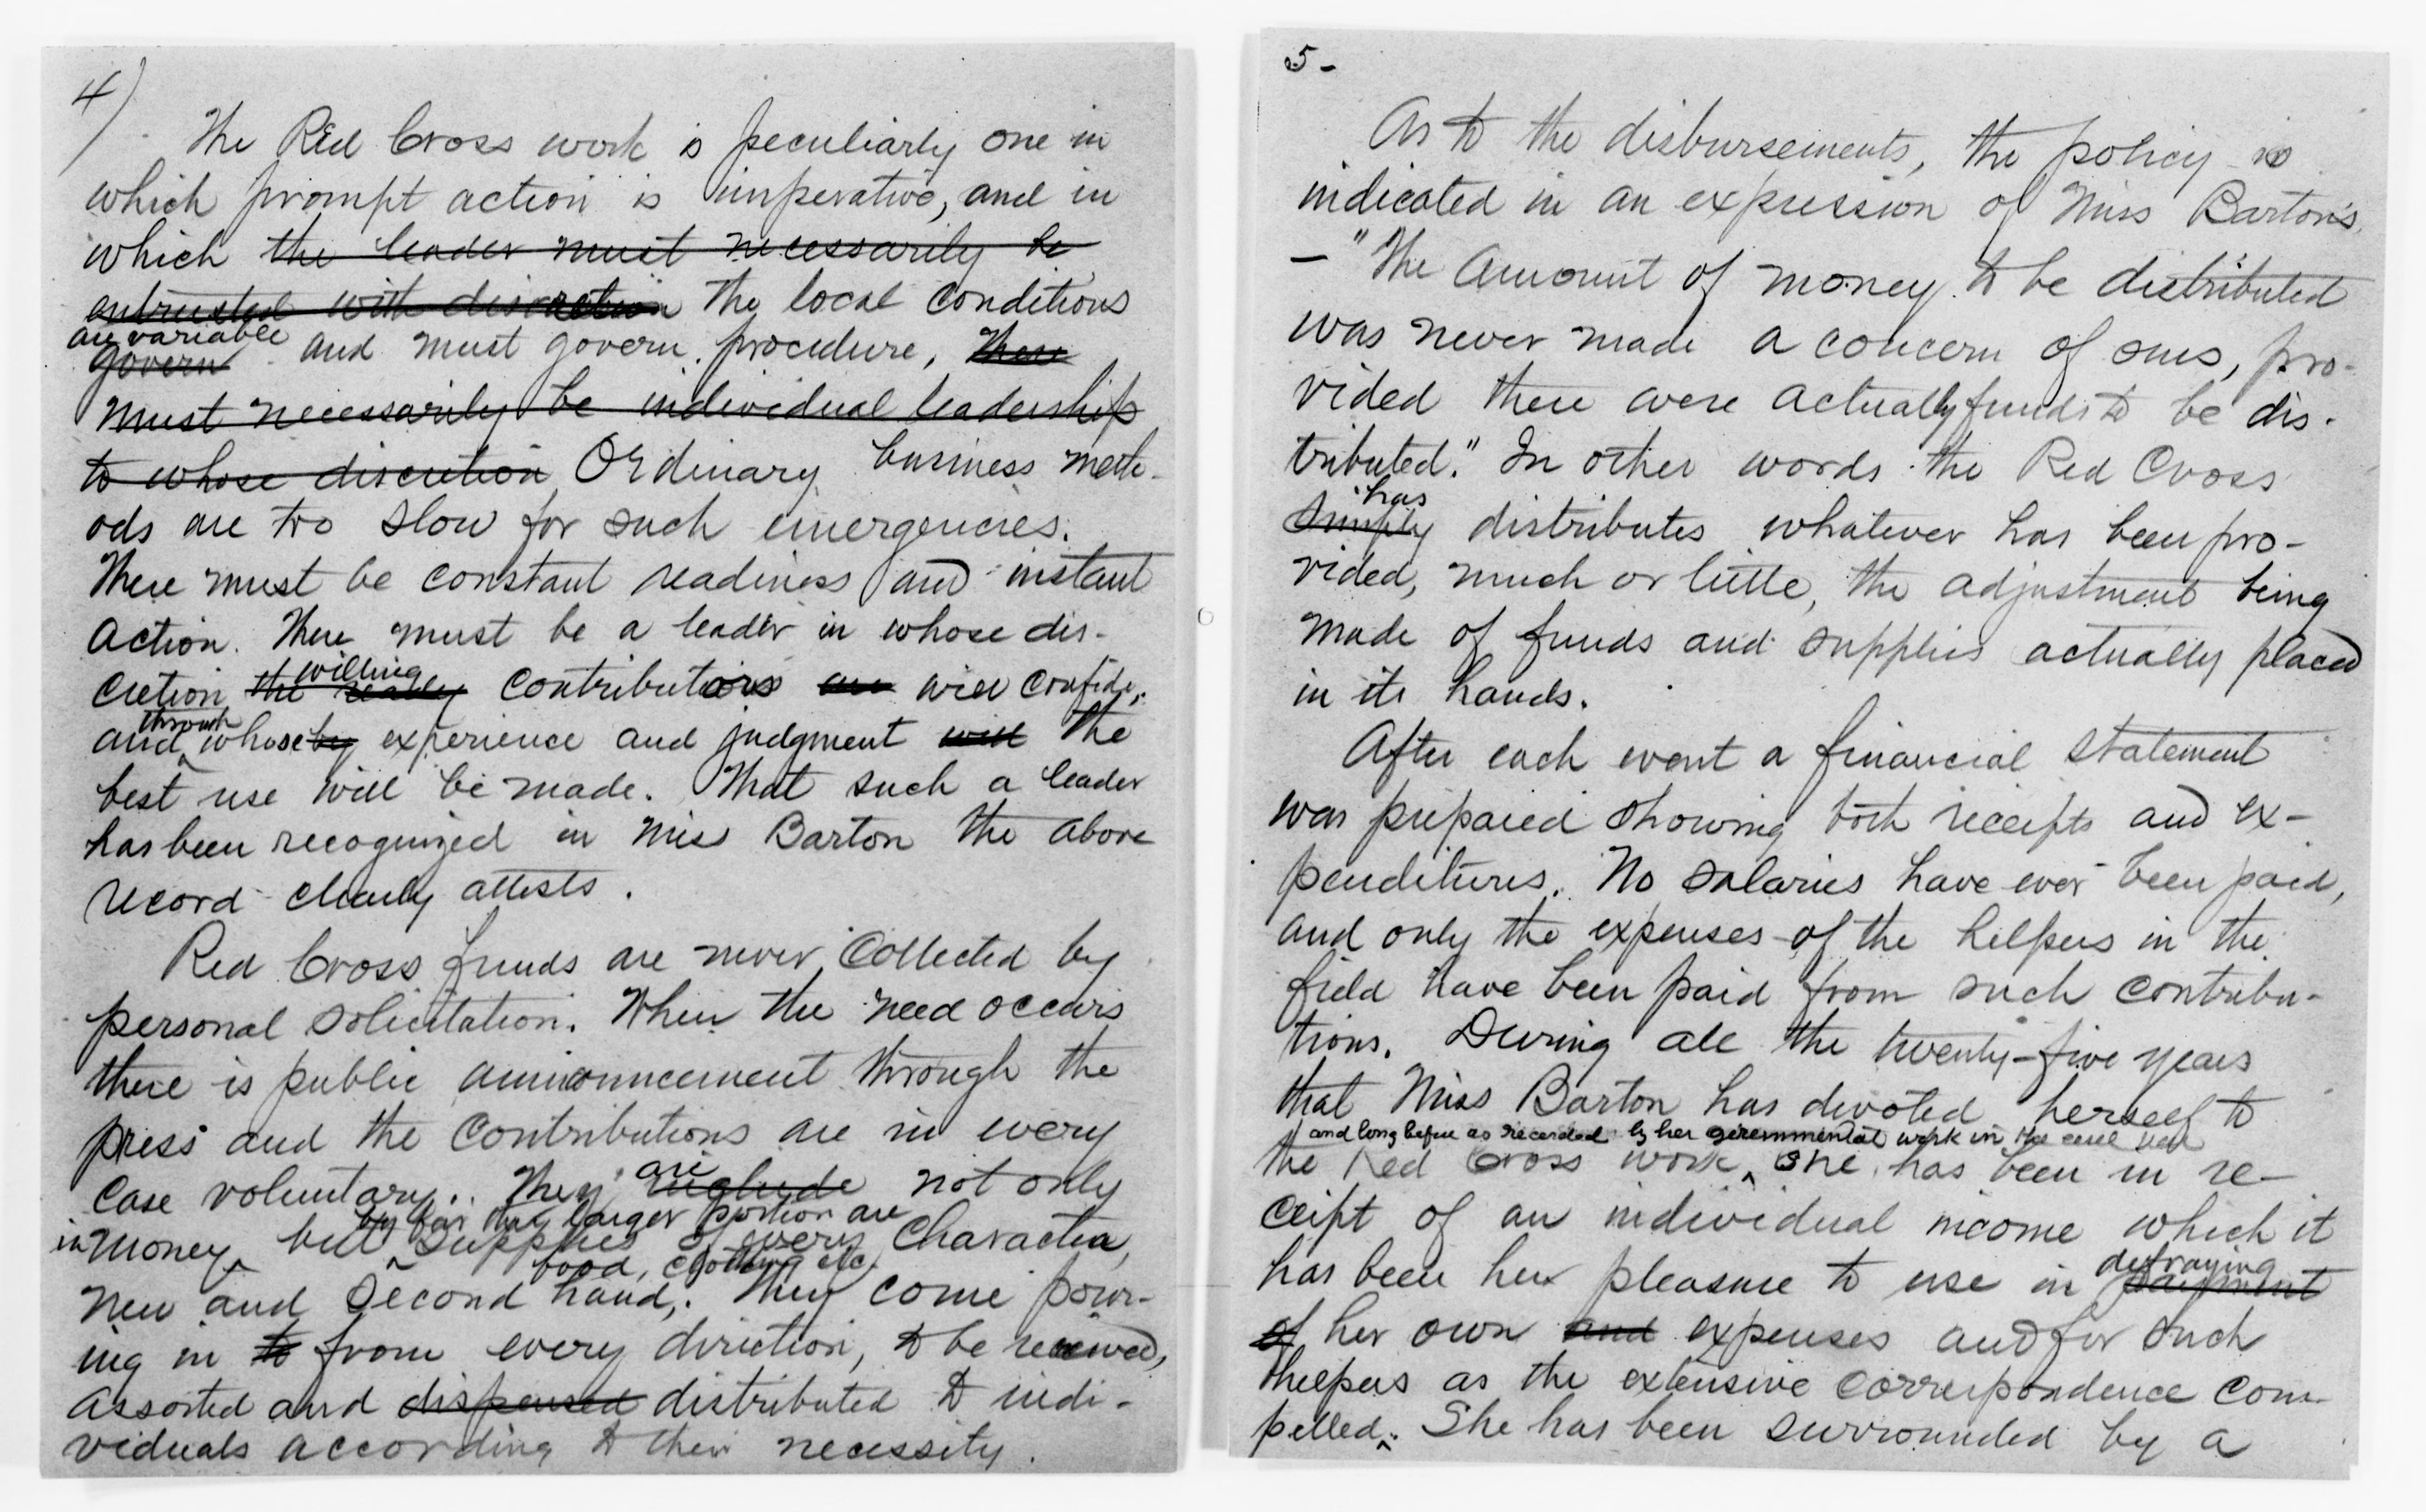 4)
The Red Cross work is peculiarly one in
which prompt action is imperative, and in
which the leader must necessarily be
entrusted with discretion the local conditions
are variable
govern and must govern procedure, there
must necessarily be individual leadership
to whose discretion Ordinary business meth-
ods are too slow for such emergencies.
There must be constant readiness and instant
action. There must be a leader in whose dis-
willing
cretion the ready contributors are will confide,
through
and whose by experience and judgment will the
best use will be made. That such a leader
has been recognized in Miss Barton the above
record clearly attests.
Red Cross funds are never collected by
personal solicitation. When the need occurs
there is public announcement through the
press and the contributions are in every
are
case voluntary. They include not only
by far the larger portion are
in money, but supplies of every character,
food, clothing etc.
new and second hand,. They come pour-
ing in to from every direction, to be received,
assorted and dispensed distributed to indi-
viduals according to their necessity.
5-
As to the disbursements, the policy is
indicated in an expression of Miss Barton's,
— "The amount of money to be distributed
was never made a concern of ours, pro-
vided there were actually funds to be dis-
tributed." In other words the Red Cross
has
simply distributes whatever has been pro-
vided, much or little, the adjustment being
made of funds and supplies actually placed
in its hands.
After each event a financial statement
was prepared showing both receipts and ex-
penditures. No salaries have ever been paid,
and only the expenses of the helpers in the
field have been paid from such contribu-
tions. During all the twenty-five years
that Miss Barton has devoted herself to
and long before as recorded by her governmental work in the civil war
the Red Cross work, she has been in re-
ceipt of an individual income which it
defraying
has been her pleasure to use in payment
of her own and expenses and for such
helpers as the extensive correspondence com-
pelled. She has been surrounded by a